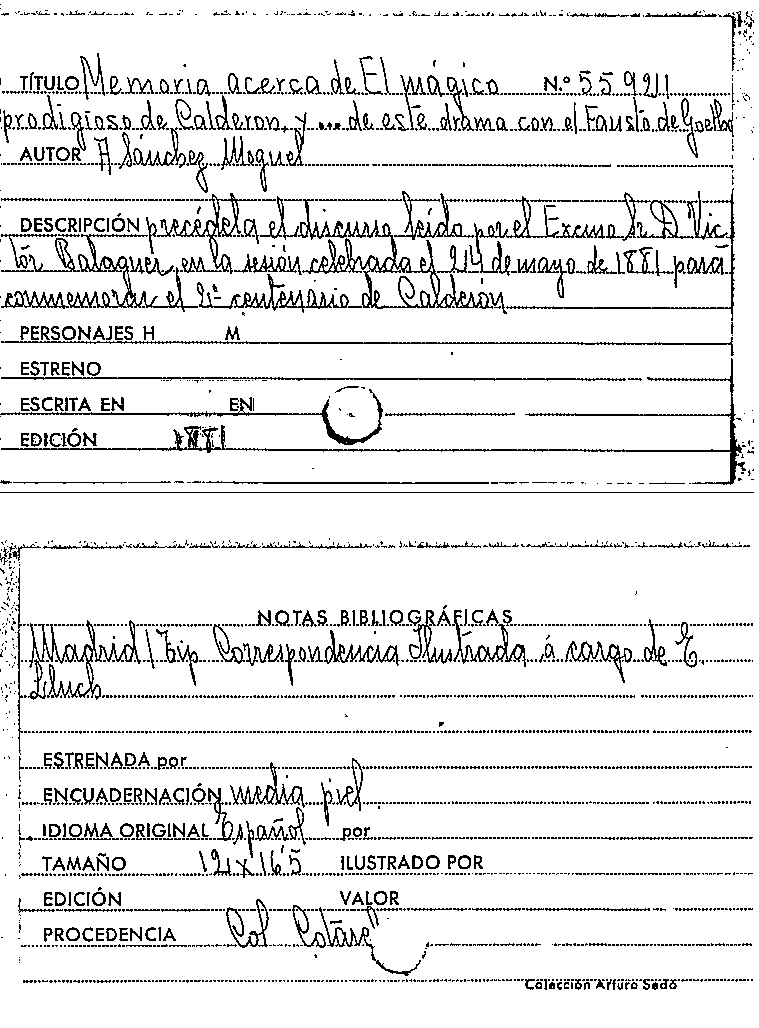 TÍTULO Memoria acerca de El mágico N.º 55921
prodigioso de Calderon, y ... de este drama con el Fausto de Goethe
AUTOR A Sánchez Moguel
DESCRIPCIÓN precédela el discurso leído por el Excmo Sr. D. Vic
tor Balaguer, en la sesión celebrada el 24 de mayo de 1881 para
conmemorar el 2º centenario de Calderón
PERSONAJES H M
ESTRENO
ESCRITA EN EN
EDICIÓN 1881
NOTAS BIBLIOGRÁFICAS
Madrid / Tip Correspondencia Ilustrada á cargo de E.
Lluch
ESTRENADA por
ENCUADERNACIÓN media piel
IDIOMA ORIGINAL Español por
TAMAÑO ILUSTRADO POR
EDICIÓN VALOR
PROCEDENCIA Col
Colección Arturo Sedó